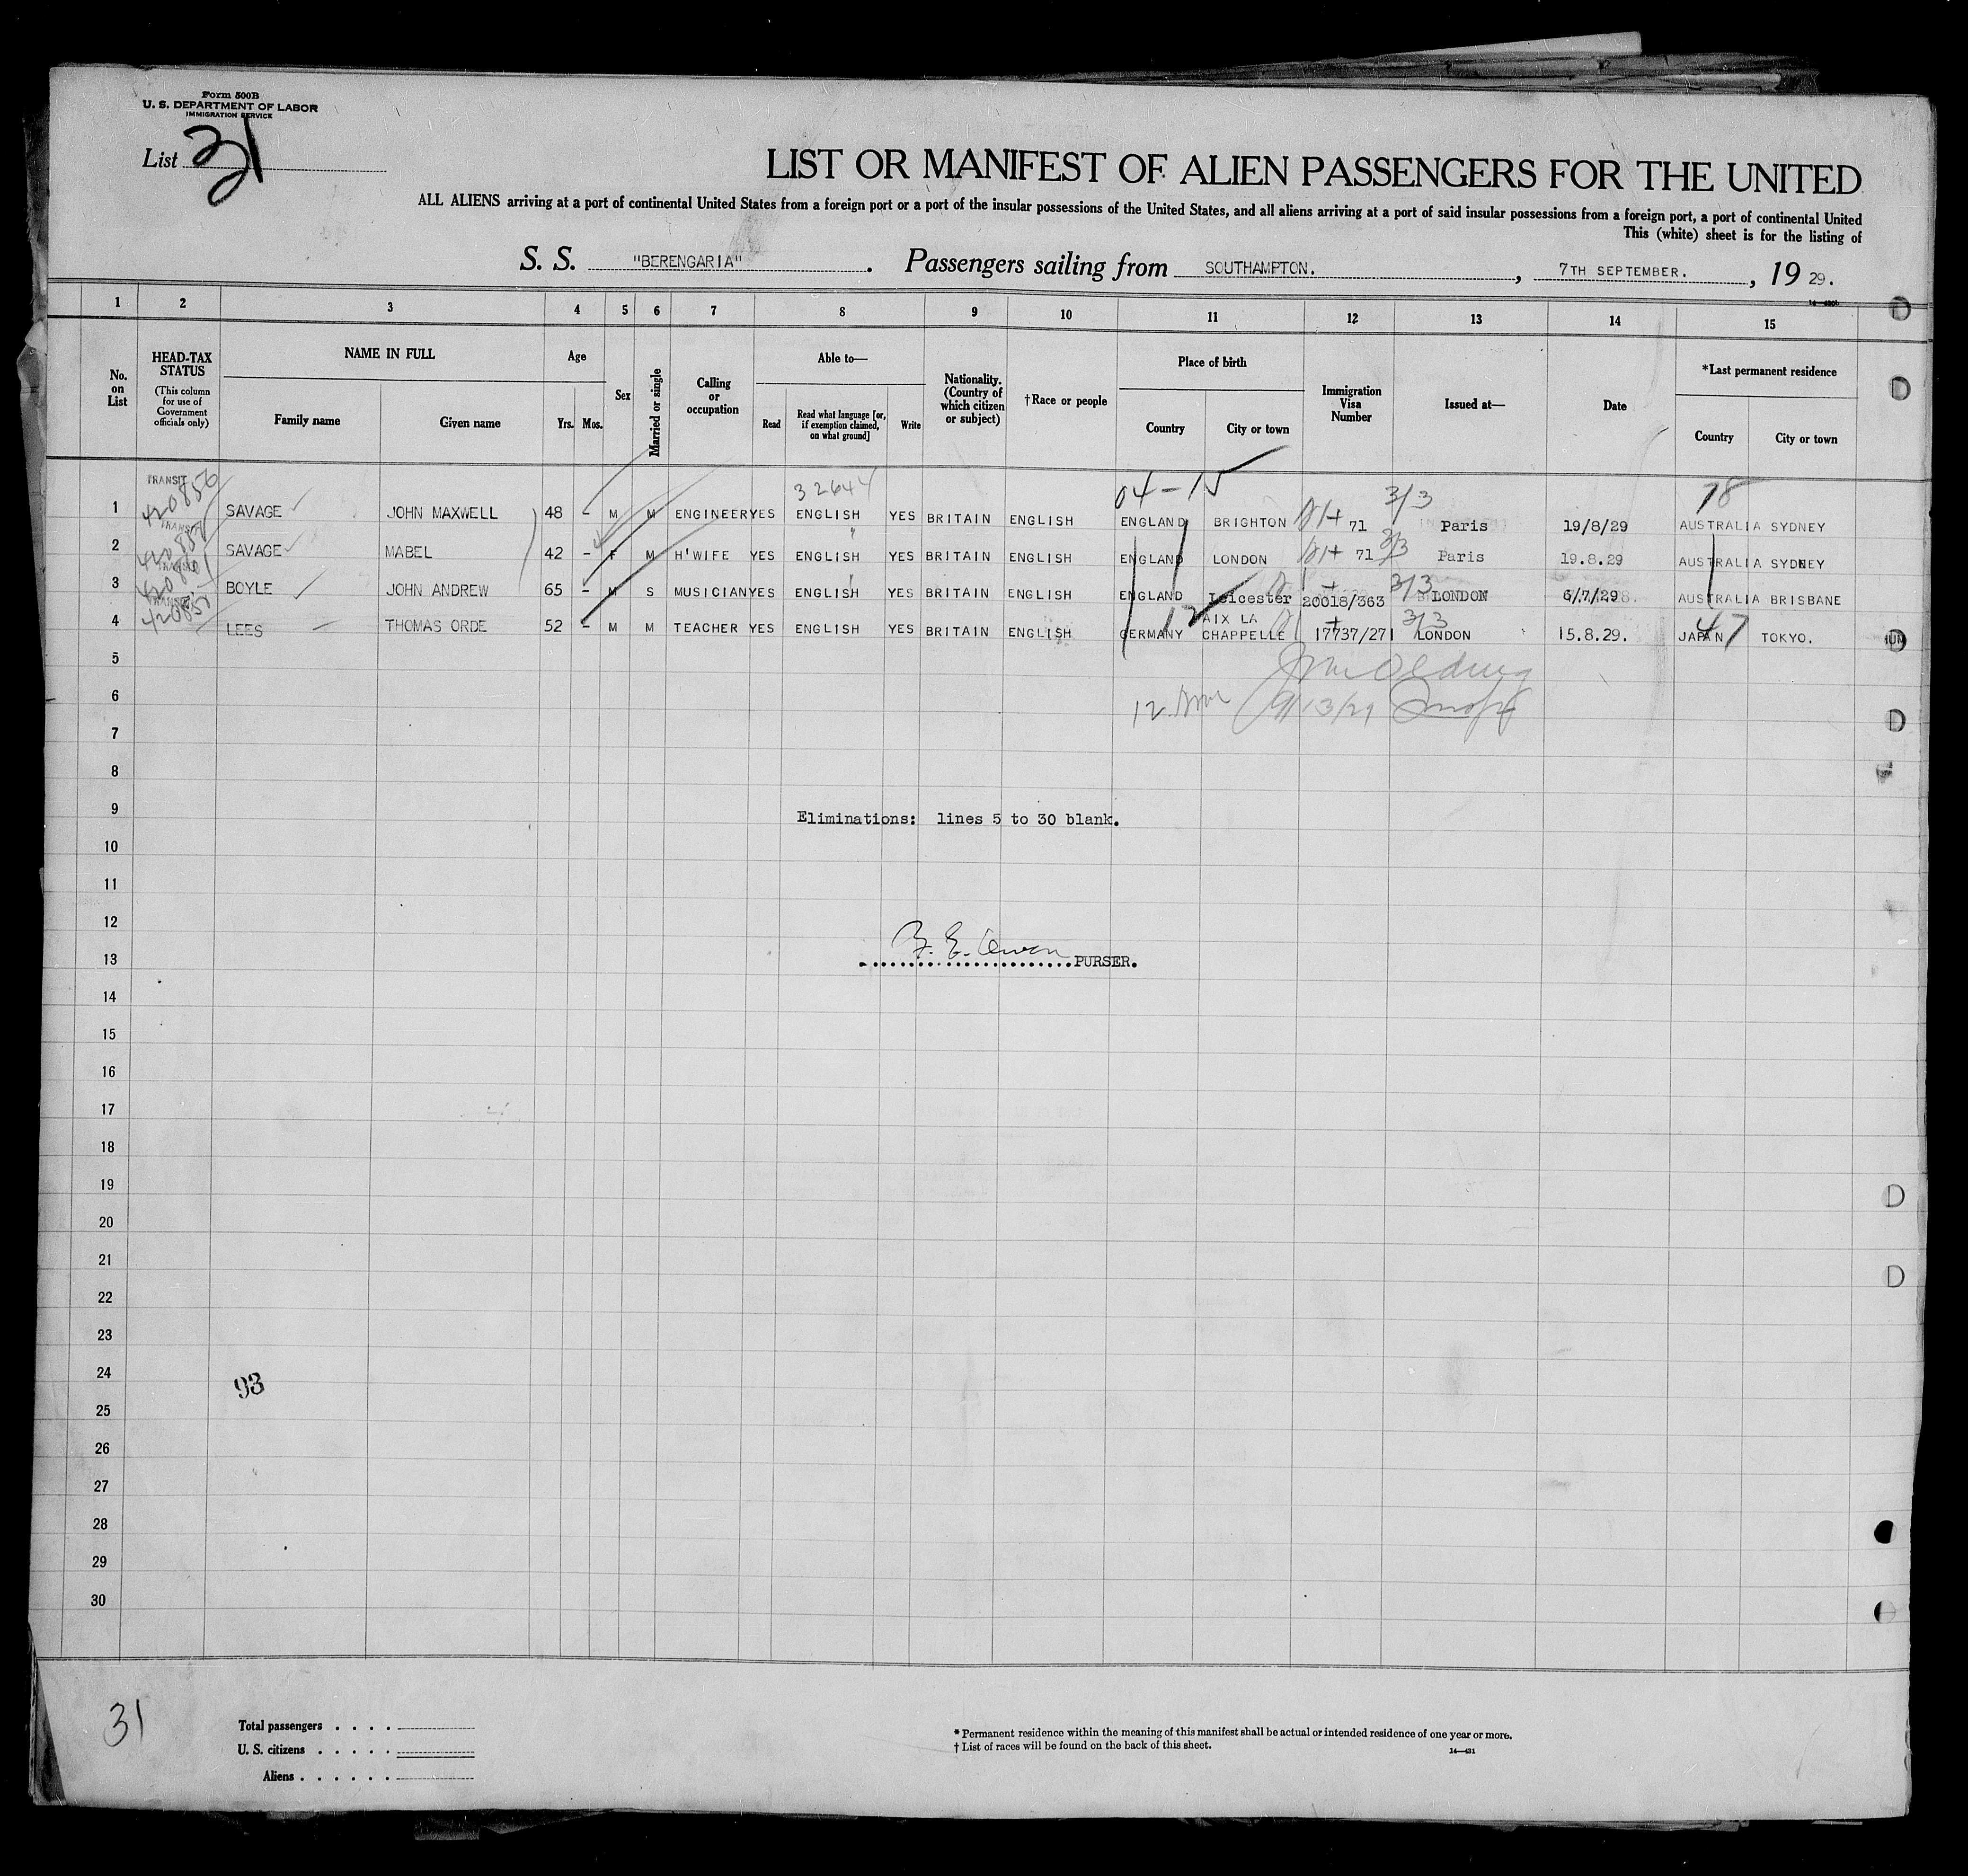 Form 500B
U. S. DEPARTMENT OF LABOR
IMMIGRATION SERVICE
List 31
LIST OR MANIFEST OF ALIEN PASSENGERS FOR THE UNITED
ALL ALIENS arriving at a port of continental United States from a foreign port or a port of the insular possessions of the United States, and all aliens arriving at a port of said insular possessions from a foreign port, a port of continental United
This (white) sheet is for the listing of
S. S. "BERENGARIA". Passengers sailing from SOUTHAMPTON., 7TH SEPTEMBER., 19 29.
1 2 3 4 5 6 7 8 9 10 11 12 13 14 15
No. on List
HEAD-TAX STATUS
(This column for use of Government officials only)
NAME IN FULL
Family name Given name
Age
Yrs. Mos.
Sex
Married or single
Calling or occupation
Able to—
Read Read what language [or, if exemption claimed, on what ground] Write
Nationality. (Country of which citizen or subject)
†Race or people
Place of birth
Country City or town
Immigration Visa Number
Issued at—
Date
*Last permanent residence
Country City or town
TRANSIT 420856 32644 04-15 3/3 78
1 SAVAGE JOHN MAXWELL 48 - M M ENGINEER YES ENGLISH YES BRITAIN ENGLISH ENGLAND BRIGHTON 71 Paris 19/8/29 AUSTRALIA SYDNEY
TRANSIT
2 SAVAGE MABEL 42 - F M H'WIFE YES ENGLISH " YES BRITAIN ENGLISH ENGLAND LONDON 71 3/3 Paris 19.8.29 AUSTRALIA SYDNEY
TRANSIT
3 BOYLE JOHN ANDREW 65 - M S MUSICIAN YES ENGLISH YES BRITAIN ENGLISH ENGLAND Leicester 20018/363 3/3 LONDON 6/7/29 AUSTRALIA BRISBANE
TRANSIT 420857
4 LEES THOMAS ORDE 52 - M M TEACHER YES ENGLISH YES BRITAIN ENGLISH GERMANY 12 AIX LA CHAPPELLE 17737/271 3/3 LONDON 15.8.29. JAPAN 47 TOKYO.
5
6 12 9/13/29
7
8
9 Eliminations: lines 5 to 30 blank.
10
11
12
13 Owen PURSER.
14
15
16
17
18
19
20
21
22
23
24 93
25
26
27
28
29
30
31
Total passengers . . . .
U. S. citizens . . . . .
Aliens . . . . . .
* Permanent residence within the meaning of this manifest shall be actual or intended residence of one year or more.
† List of races will be found on the back of this sheet.
14—431